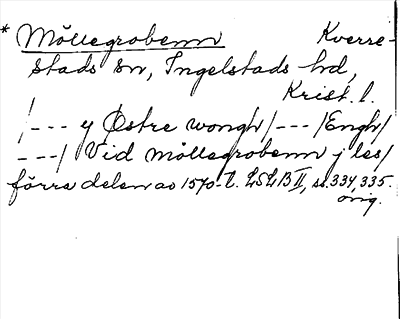 * Möllegrobenn Kverre-
stads sn, Ingelstads hd,
Krist. l.
/--- y Östre wongh/---/Engh/
---/ Vid möllegrobenn j les/
förra delen av 1570-t. LSLB II, s. 334, 335.
orig.